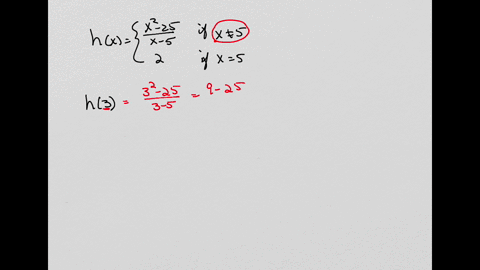 h(x) = { x²-25 / x-5 if x≠5
2 if x=5
h(3) = 3²-25 / 3-5 = 9-25